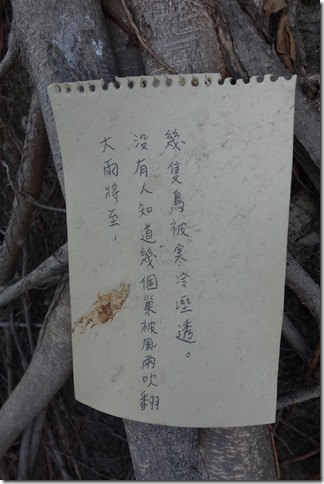 大雨將至，
没有人知道幾個巢被風雨吹翻
幾隻鳥被寒冷溼透。